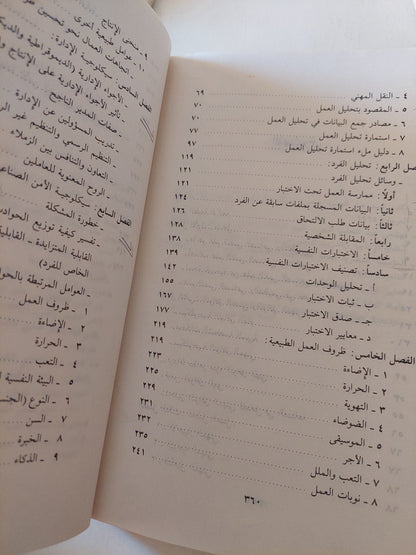 ٤ ـ النقل المهني ٦٩
٥ ـ المقصود بتحليل العمل ٧٠
٦ ـ مصادر جمع البيانات في تحليل العمل ٧٠
٧ ـ استمارة تحليل العمل ٧٧
٨ ـ دليل ملء استمارة تحليل العمل ٩٧
صل الرابع: تحليل الفرد: ١١٩
ـ وسائل تحليل الفرد ١٢١
أولاً: ممارسة العمل تحت الاختبار ١٢١
ثانياً: البيانات المسجلة بملفات سابقة عن الفرد ١٢٤
ثالثاً: بيانات طلب الالتحاق ١٢٦
رابعاً: المقابلة الشخصية ١٢٨
خامساً: الاختبارات النفسية ١٣٨
سادساً: تصنيف الاختبارات النفسية ١٤٢
أ ـ تحليل الوحدات ١٥٥
ب ـ ثبات الاختبار ١٦٧
جـ ـ صدق الاختبار ١٧٧
د ـ معايير الاختبار ٢١٩
الفصل الخامس: ظروف العمل الطبيعية: ٢١٩
١ ـ الإضاءة ٢٢٣
٢ ـ الحرارة ٢٢٥
٣ ـ التهوية ٢٢٩
٤ ـ الضوضاء ٢٣١
٥ ـ الموسيقى ٢٣٢
٦ ـ الأجر ٢٣٥
٧ ـ التعب والملل ٢٤١
٨ ـ نوبات العمل
٣٦٠
٩ ـ منحنى الإنتاج
١٠ ـ عوامل طبيعية أخرى
ـ اتجاهات العمال نحو تحسين
الفصل السادس: سيكلوجية الإدارة:
ـ الأجواء الإدارية (الديموقراطية والديك
ـ تأثير الأجواء الإدارية على الإنتاج و
ـ صفات المدير الناجح
ـ تدريب المسؤولين عن الإدارة
ـ التنظيم الرسمي والتنظيم غير الر
ـ التعاون والتنافس بين الزملاء
ـ الروح المعنوية للعاملين
الفصل السابع: سيكلوجية الأمن الصناعي
ـ خطورة المشكلة
ـ تفسير كيفية توزيع الحوادث
القابلية المتزايدة ـ القابلية
الخاص للفرد)
ـ العوامل المرتبطة بالحو
١ ـ ظروف العمل
٢ ـ الإضاءة
٣ ـ الحرارة
٤ ـ التعب
٥ ـ البيئة النفسية
٦ ـ النوع (الجنس
٧ ـ السن
٨ ـ الخبرة
٩ ـ الذكاء